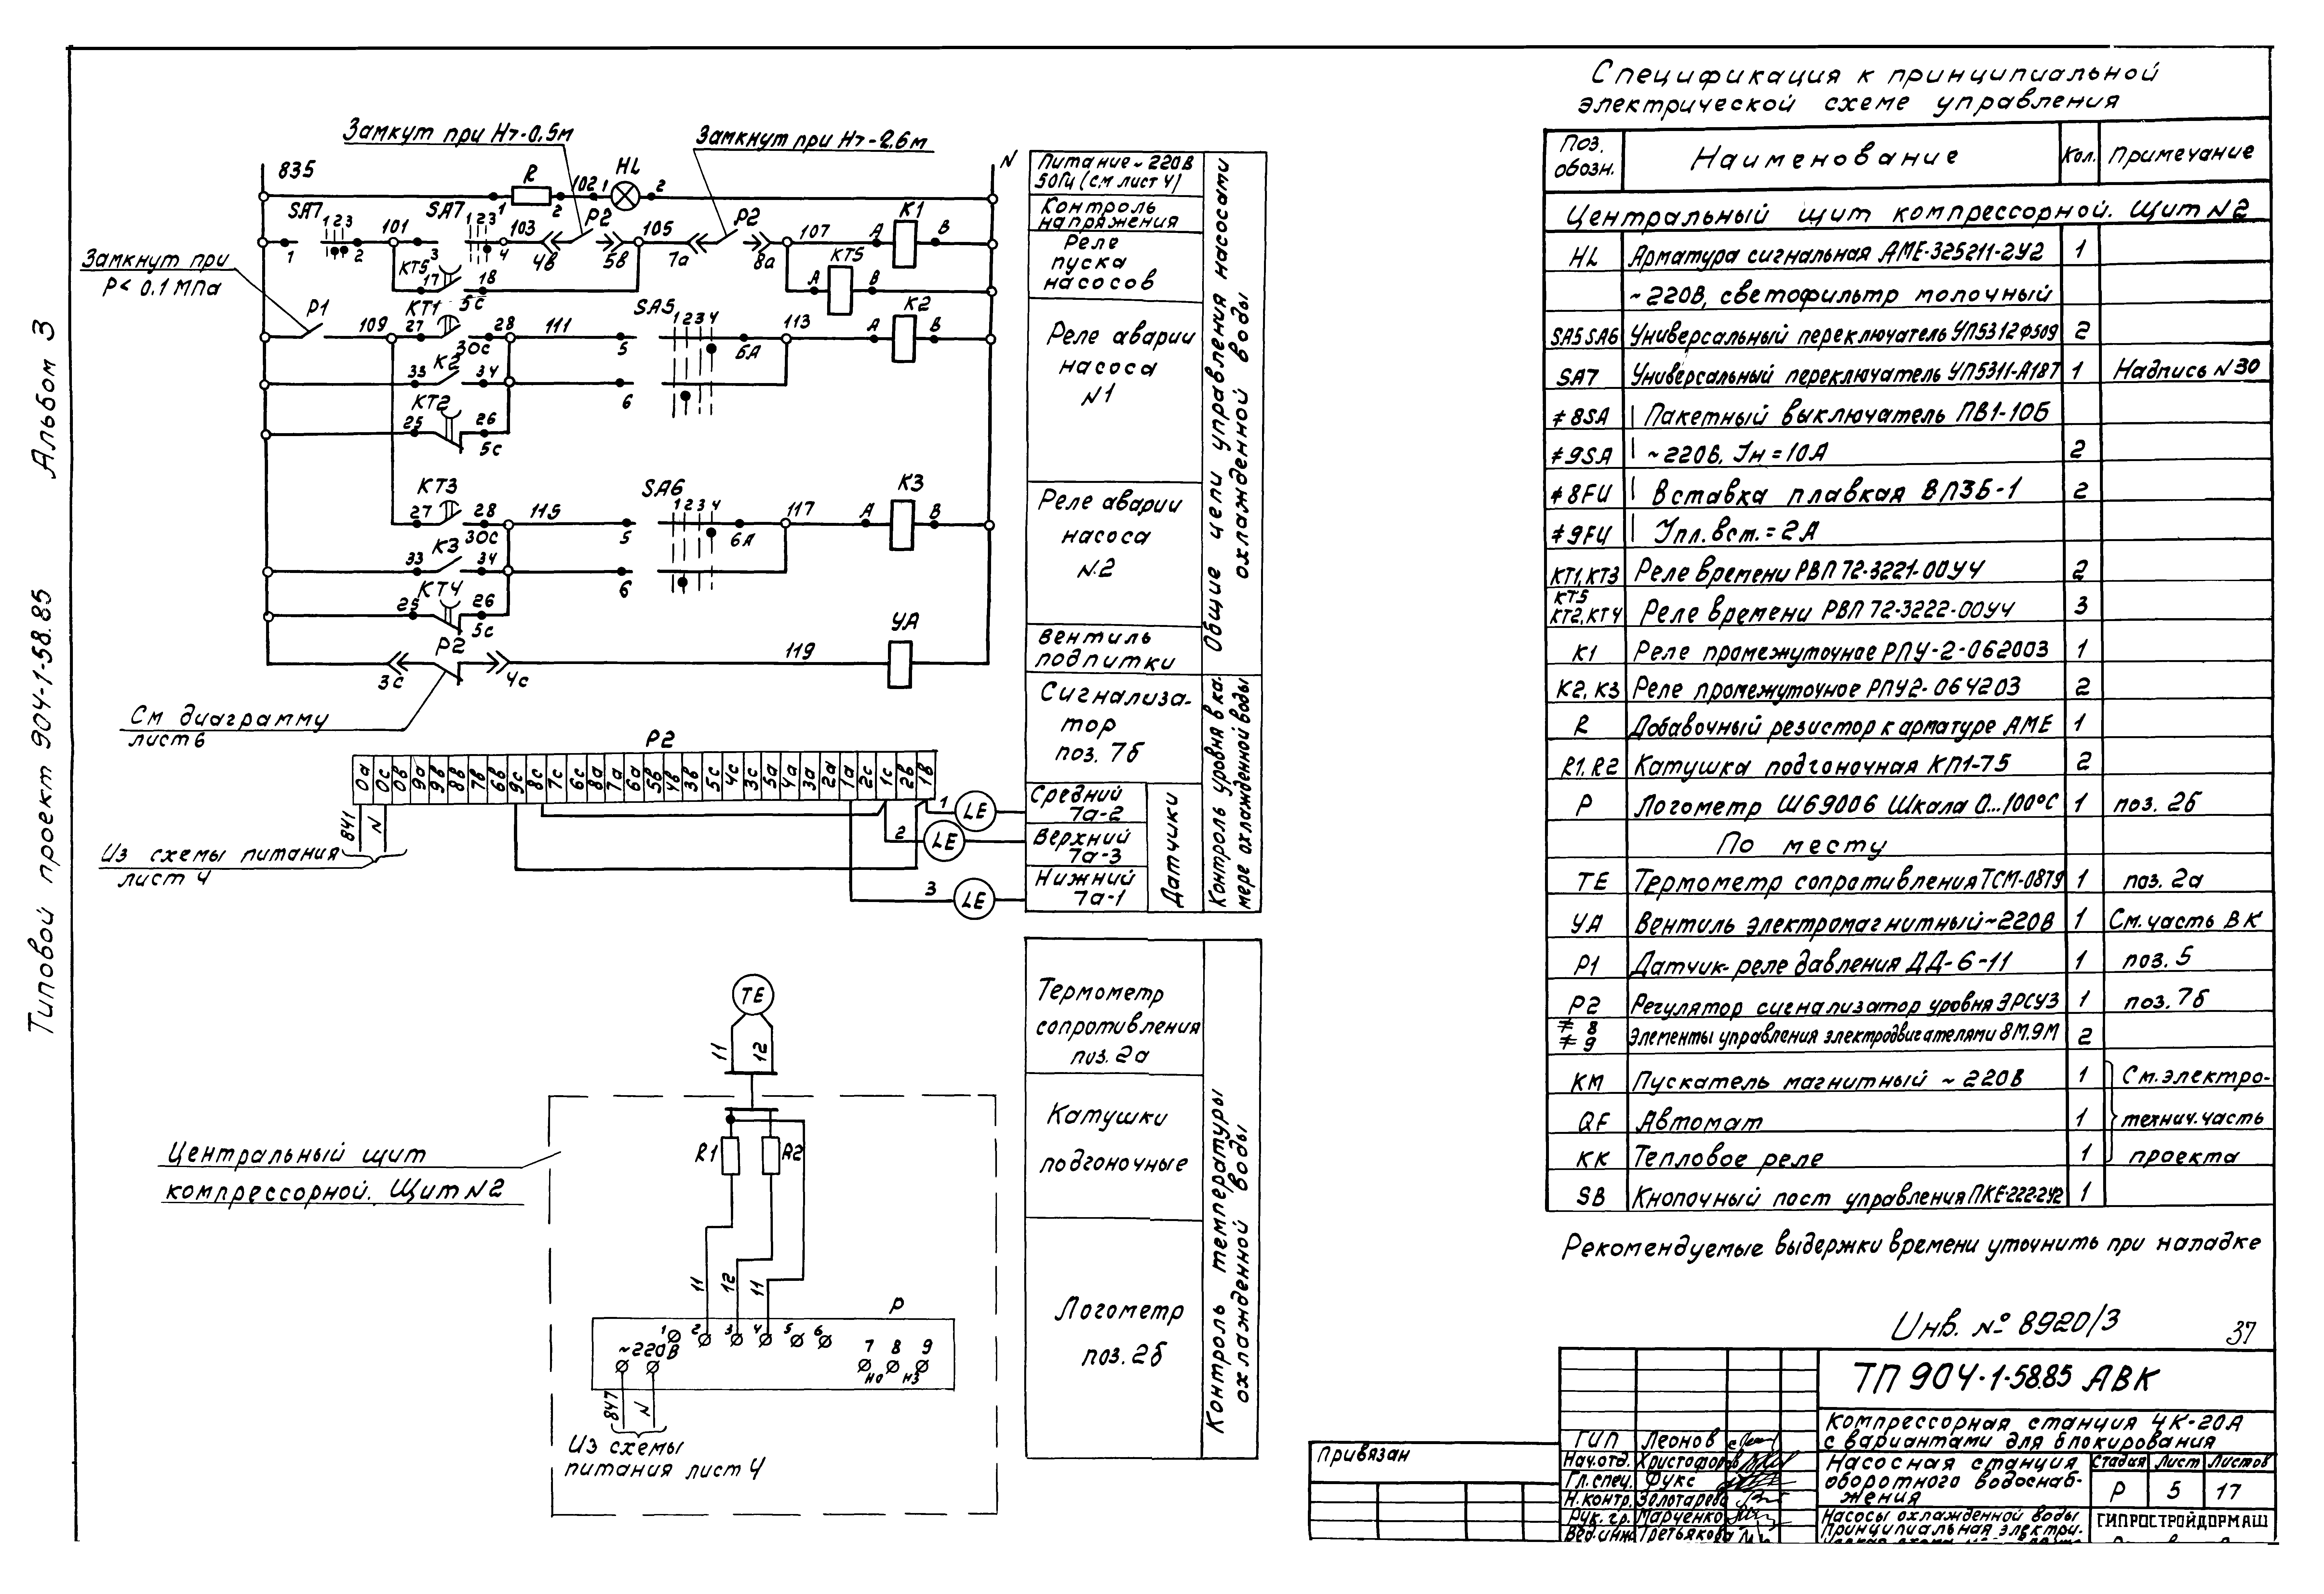 Типовой проект 904-1-58.85 Альбом 3
Замкут при Н>-0.5м
Замкнут при Н>-2.6м
835
N
R
102
HL
1
2
1
2
SA7
1 2 3
SA7
1 2 3
101
103
P2
105
P2
107
K1
A
B
1
2
3
4
4в
5в
7а
8а
KT5
17
18
5с
KT5
A
B
Замкнут при
Р< 0.1 МПа
P1
109
KT1
27
28
30с
111
SA5
1 2 3 4
5
6А
113
K2
A
B
K2
33
34
6
KT2
25
26
5с
KT3
27
28
30с
115
SA6
1 2 3 4
5
6А
117
K3
A
B
K3
33
34
6
KT4
25
26
5с
P2
3с
4с
119
УА
См диаграмму
лист 6
P2
0а 0с 0в 9а 9в 8в 7в 6в 9с 8с 7с 6с 8а 7а 6а 5в 4в 3в 5с 4с 3с 5а 4а 3а 2а 1а 2с 1с 2в 1в
841
N
Из схемы питания
лист 4
1
LE
2
LE
3
LE
Питание ~ 220В
50Гц (см лист 4)
Контроль
напряжения
Реле
пуска
насосов
Реле аварии
насоса
N1
Реле аварии
насоса
N.2
Вентиль
подпитки
Общие цепи управления насосами
охлажденной воды
Сигнализа-
тор
поз. 7б
Средний
7а-2
Верхний
7а-3
Нижний
7а-1
Датчики
Контроль уровня в ка-
мере охлажденной воды
TE
11
12
R1
R2
Центральный щит
компрессорной. Щит N2
11
12
11
P
1 2 3 4 5 6
7 8 9
но
нз
~220В
847
N
Из схемы
питания лист 4
Термометр
сопротивления
поз. 2а
Катушки
подгоночные
Логометр
поз. 2б
Контроль температуры
охлажденной воды
Спецификация к принципиальной
электрической схеме управления
Поз. обозн. Наименование Кол. Примечание
Центральный щит компрессорной. Щит N2
HL Арматура сигнальная АМЕ-325211-2У2 1
~220В, светофильтр молочный
SA5 SA6 Универсальный переключатель УП5312Ф509 2
SA7 Универсальный переключатель УП5311-А187 1 Надпись N30
≠8SA Пакетный выключатель ПВ1-10Б
≠9SA ~220В, Iн = 10А 2
≠8FU Вставка плавкая ВПЗБ-1 2
≠9FU Iпл. вст. = 2А
KT1, KT3 Реле времени РВП 72-3221-00У4 2
KT5
KT2, KT4 Реле времени РВП 72-3222-00У4 3
K1 Реле промежуточное РПУ-2-062003 1
K2, K3 Реле промежуточное РПУ2-064203 2
R Добавочный резистор к арматуре АМЕ 1
R1, R2 Катушка подгоночная КП1-75 2
P Логометр Ш69006 Шкала 0...100°С 1 поз. 2б
По месту
TE Термометр сопротивления ТСМ-0879 1 поз. 2а
УА Вентиль электромагнитный ~220В 1 См. часть ВК
P1 Датчик-реле давления ДД-6-11 1 поз. 5
P2 Регулятор сигнализатор уровня ЭРСУ3 1 поз. 7б
≠ 8
≠ 9 Элементы управления электродвигателями 8М, 9М 2
KM Пускатель магнитный ~ 220В 1 См. электро-
QF Автомат 1 технич. часть
KK Тепловое реле 1 проекта
SB Кнопочный пост управления ПКЕ-222-2У2 1
Рекомендуемые выдержки времени уточнить при наладке
Инв. № 8920/3
37
Привязан
ГИП Леонов
Нач.отд. Христофоров
Гл. спец. Фукс
Н.контр. Золотарева
Рук. гр. Марченко
Вед.инж Третьякова
ТП 904-1-58.85 АВК
Компрессорная станция 4К-20А
с вариантами для блокирования
Насосная станция
оборотного водоснаб-
жения
Стадия Лист Листов
Р 5 17
Насосы охлажденной воды
Принципиальная электри-
ГИПРОСТРОЙДОРМАШ